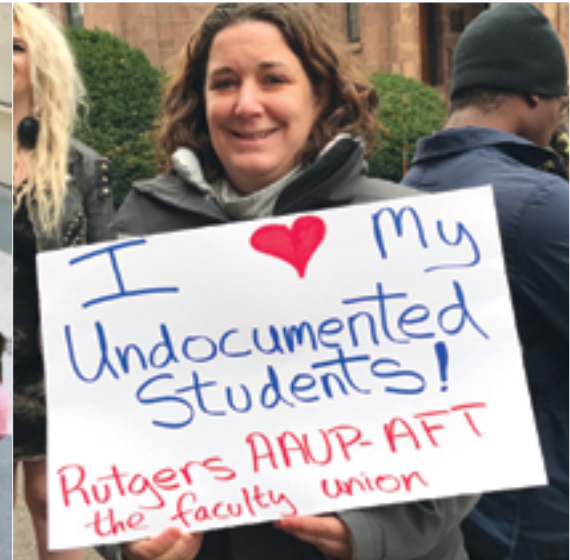 I ❤ My
Undocumented
Students!
Rutgers AAUP-AFT
the faculty union